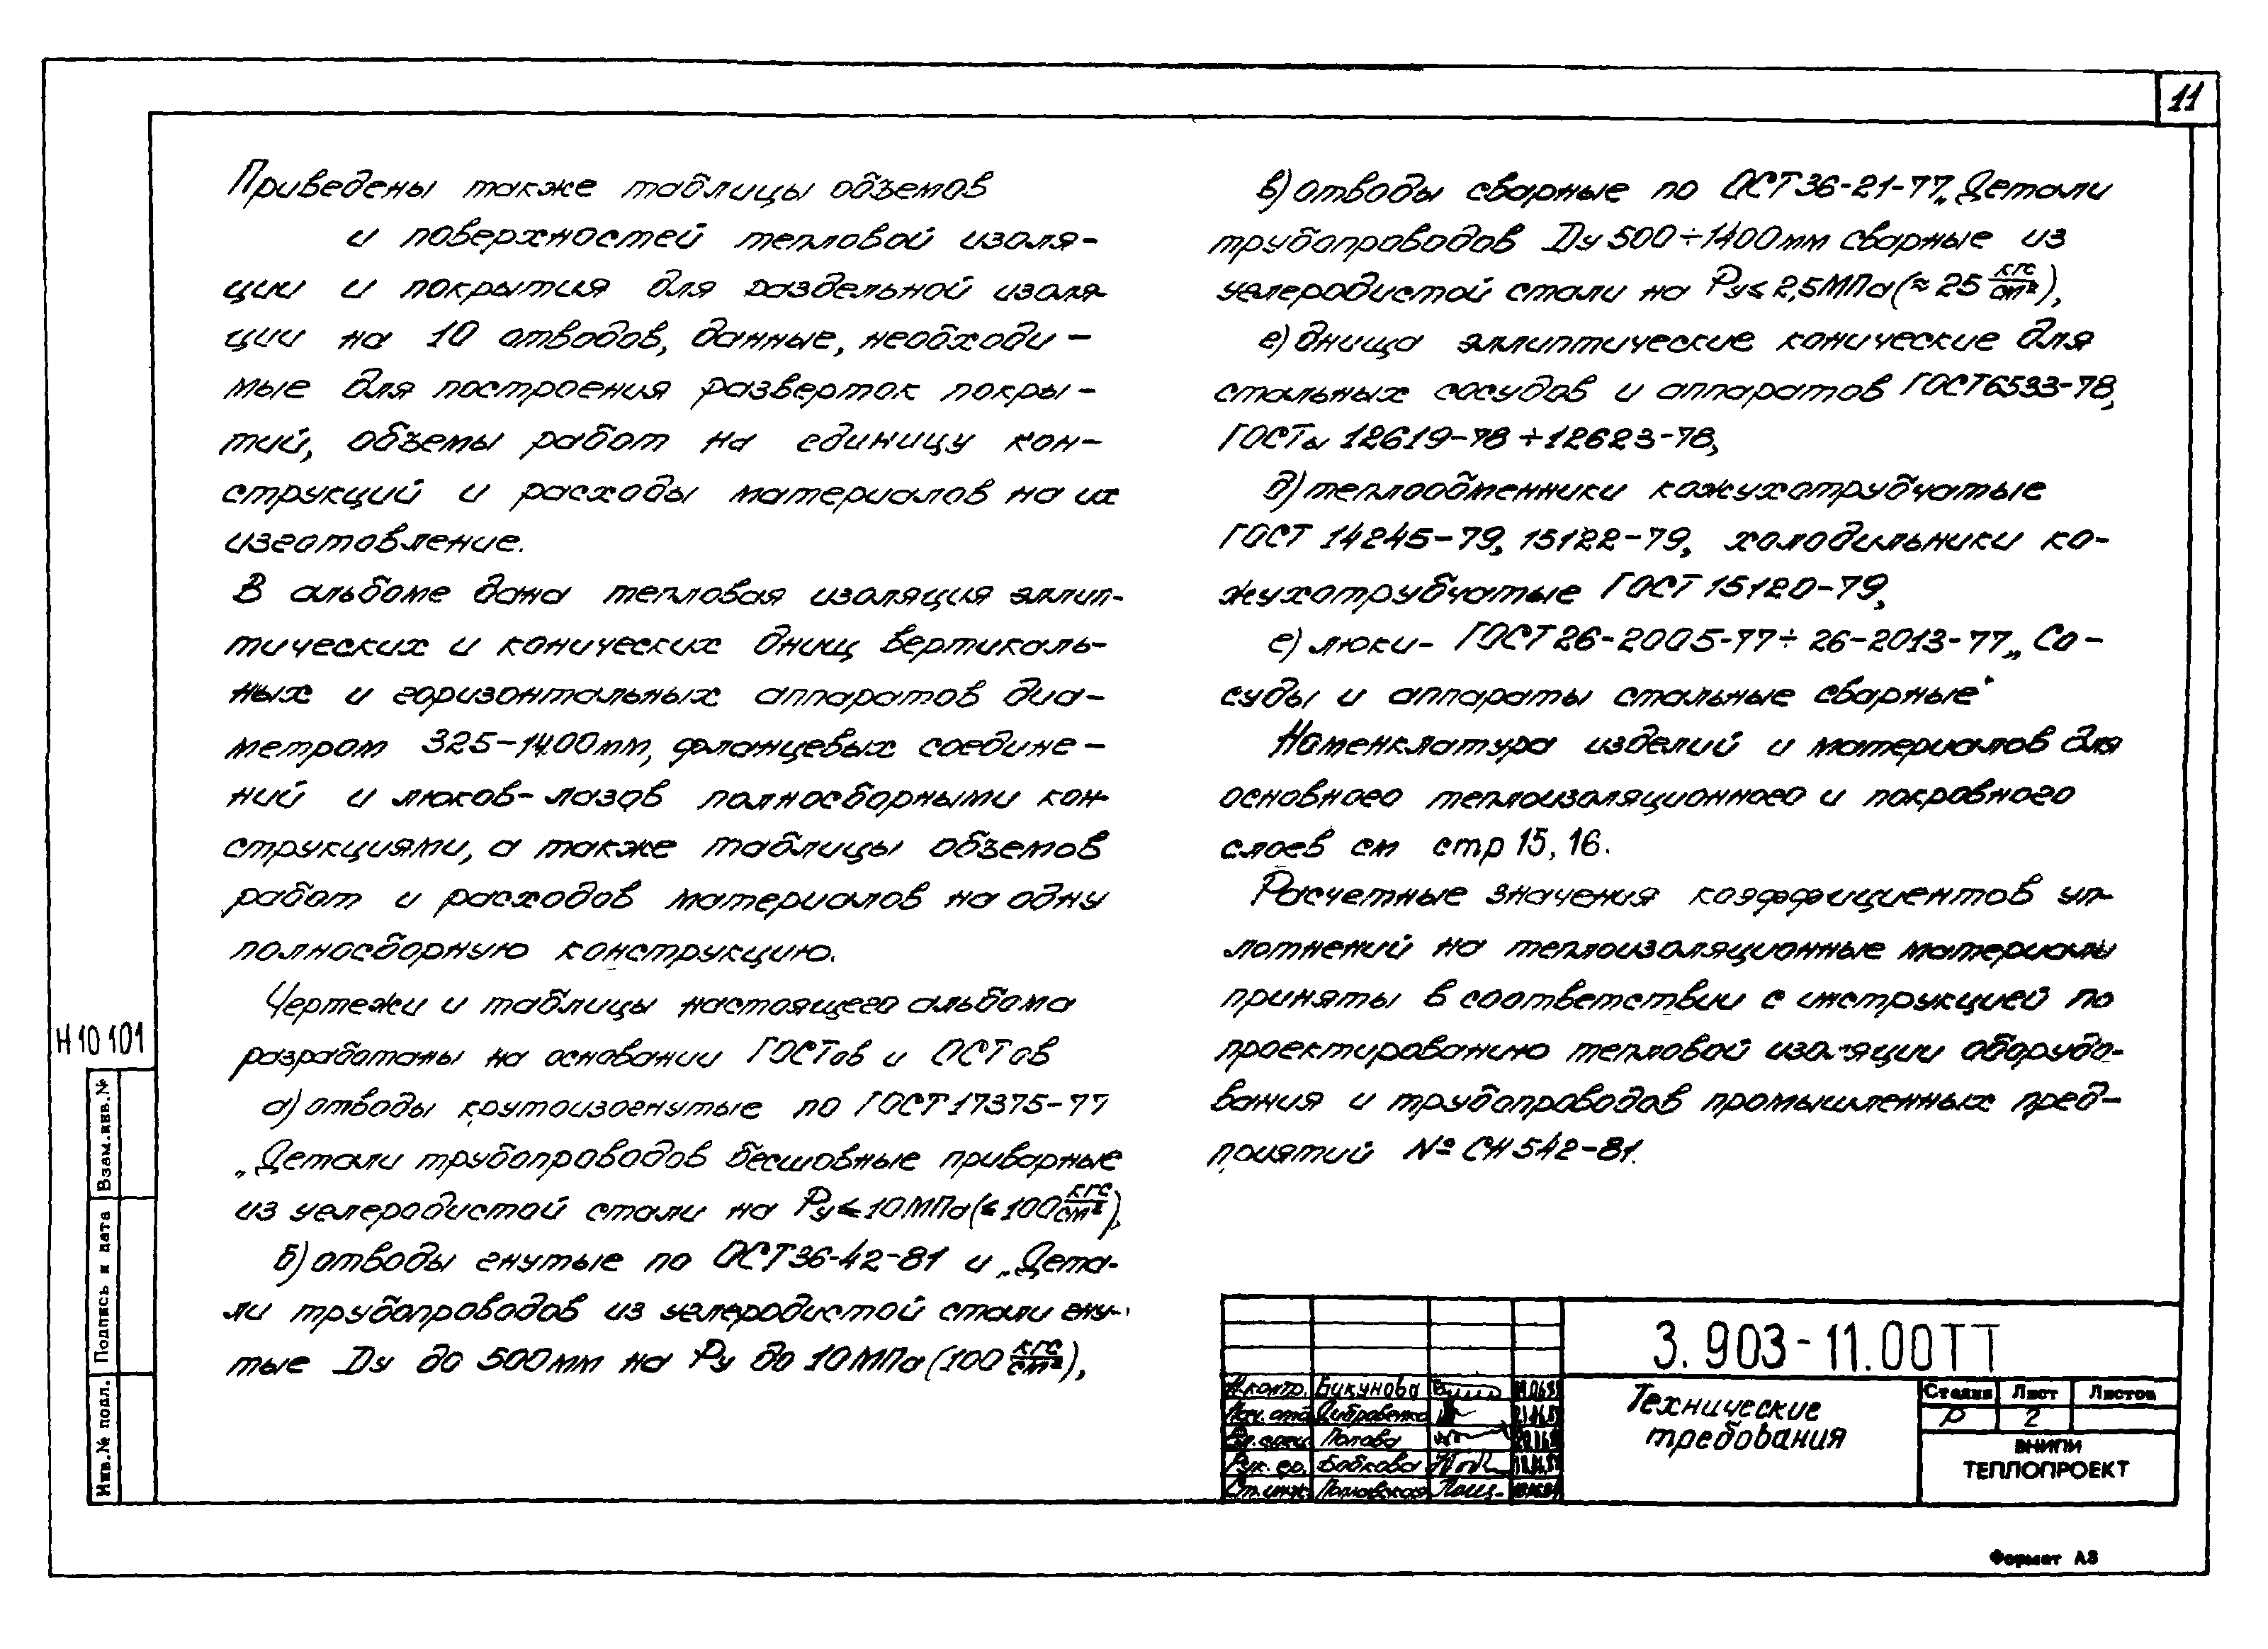 11
Приведены также таблицы объемов
и поверхностей тепловой изоля-
ции и покрытия для раздельной изоля-
ции на 10 отводов, данные, необходи-
мые для построения разверток покры-
тий, объемы работ на единицу кон-
струкций и расходы материалов на их
изготовление.
В альбоме дана тепловая изоляция эллип-
тических и конических днищ вертикаль-
ных и горизонтальных аппаратов диа-
метром 325-1400мм, фланцевых соедине-
ний и люков-лазов полносборными кон-
струкциями, а также таблицы объемов
работ и расходов материалов на одну
полносборную конструкцию.
Чертежи и таблицы настоящего альбома
разработаны на основании ГОСТов и ОСТов
а) отводы крутоизогнутые по ГОСТ 17375-77
„Детали трубопроводов бесшовные приварные
из углеродистой стали на Ру≤10МПа(≤100 кгс/см²),
б) отводы гнутые по ОСТ36-42-81 и „Дета-
ли трубопроводов из углеродистой стали гну-
тые Dу до 500мм на Ру до 10МПа (100 кгс/см²),
в) отводы сварные по ОСТ36-21-77„Детали
трубопроводов Dу 500÷1400мм сварные из
углеродистой стали на Ру≤2,5МПа(≈25 кгс/см²),
г) днища эллиптические конические для
стальных сосудов и аппаратов ГОСТ6533-78,
ГОСТы 12619-78÷12623-78,
д) теплообменники кожухотрубчатые
ГОСТ 14245-79, 15122-79, холодильники ко-
жухотрубчатые ГОСТ 15120-79,
е) люки- ГОСТ26-2005-77÷26-2013-77„Со-
суды и аппараты стальные сварные"
Номенклатура изделий и материалов для
основного теплоизоляционного и покровного
слоев см стр 15, 16.
Расчетные значения коэффициентов уп-
лотнений на теплоизоляционные материалы
приняты в соответствии с инструкцией по
проектированию тепловой изоляции оборудо-
вания и трубопроводов промышленных пред-
приятий № СН 542-81.
Н10101
Взам.инв.№
Подпись и дата
Инв.№ подл.
3.903-11.00ТТ
Н.контр. Букунова
Нач. отд.
Гл. спец. Попова
Рук. гр. Бобкова
Ст. инж.
Технические
требования
Стадия Лист Листов
Р 2
ВНИПИ
ТЕПЛОПРОЕКТ
Формат А3